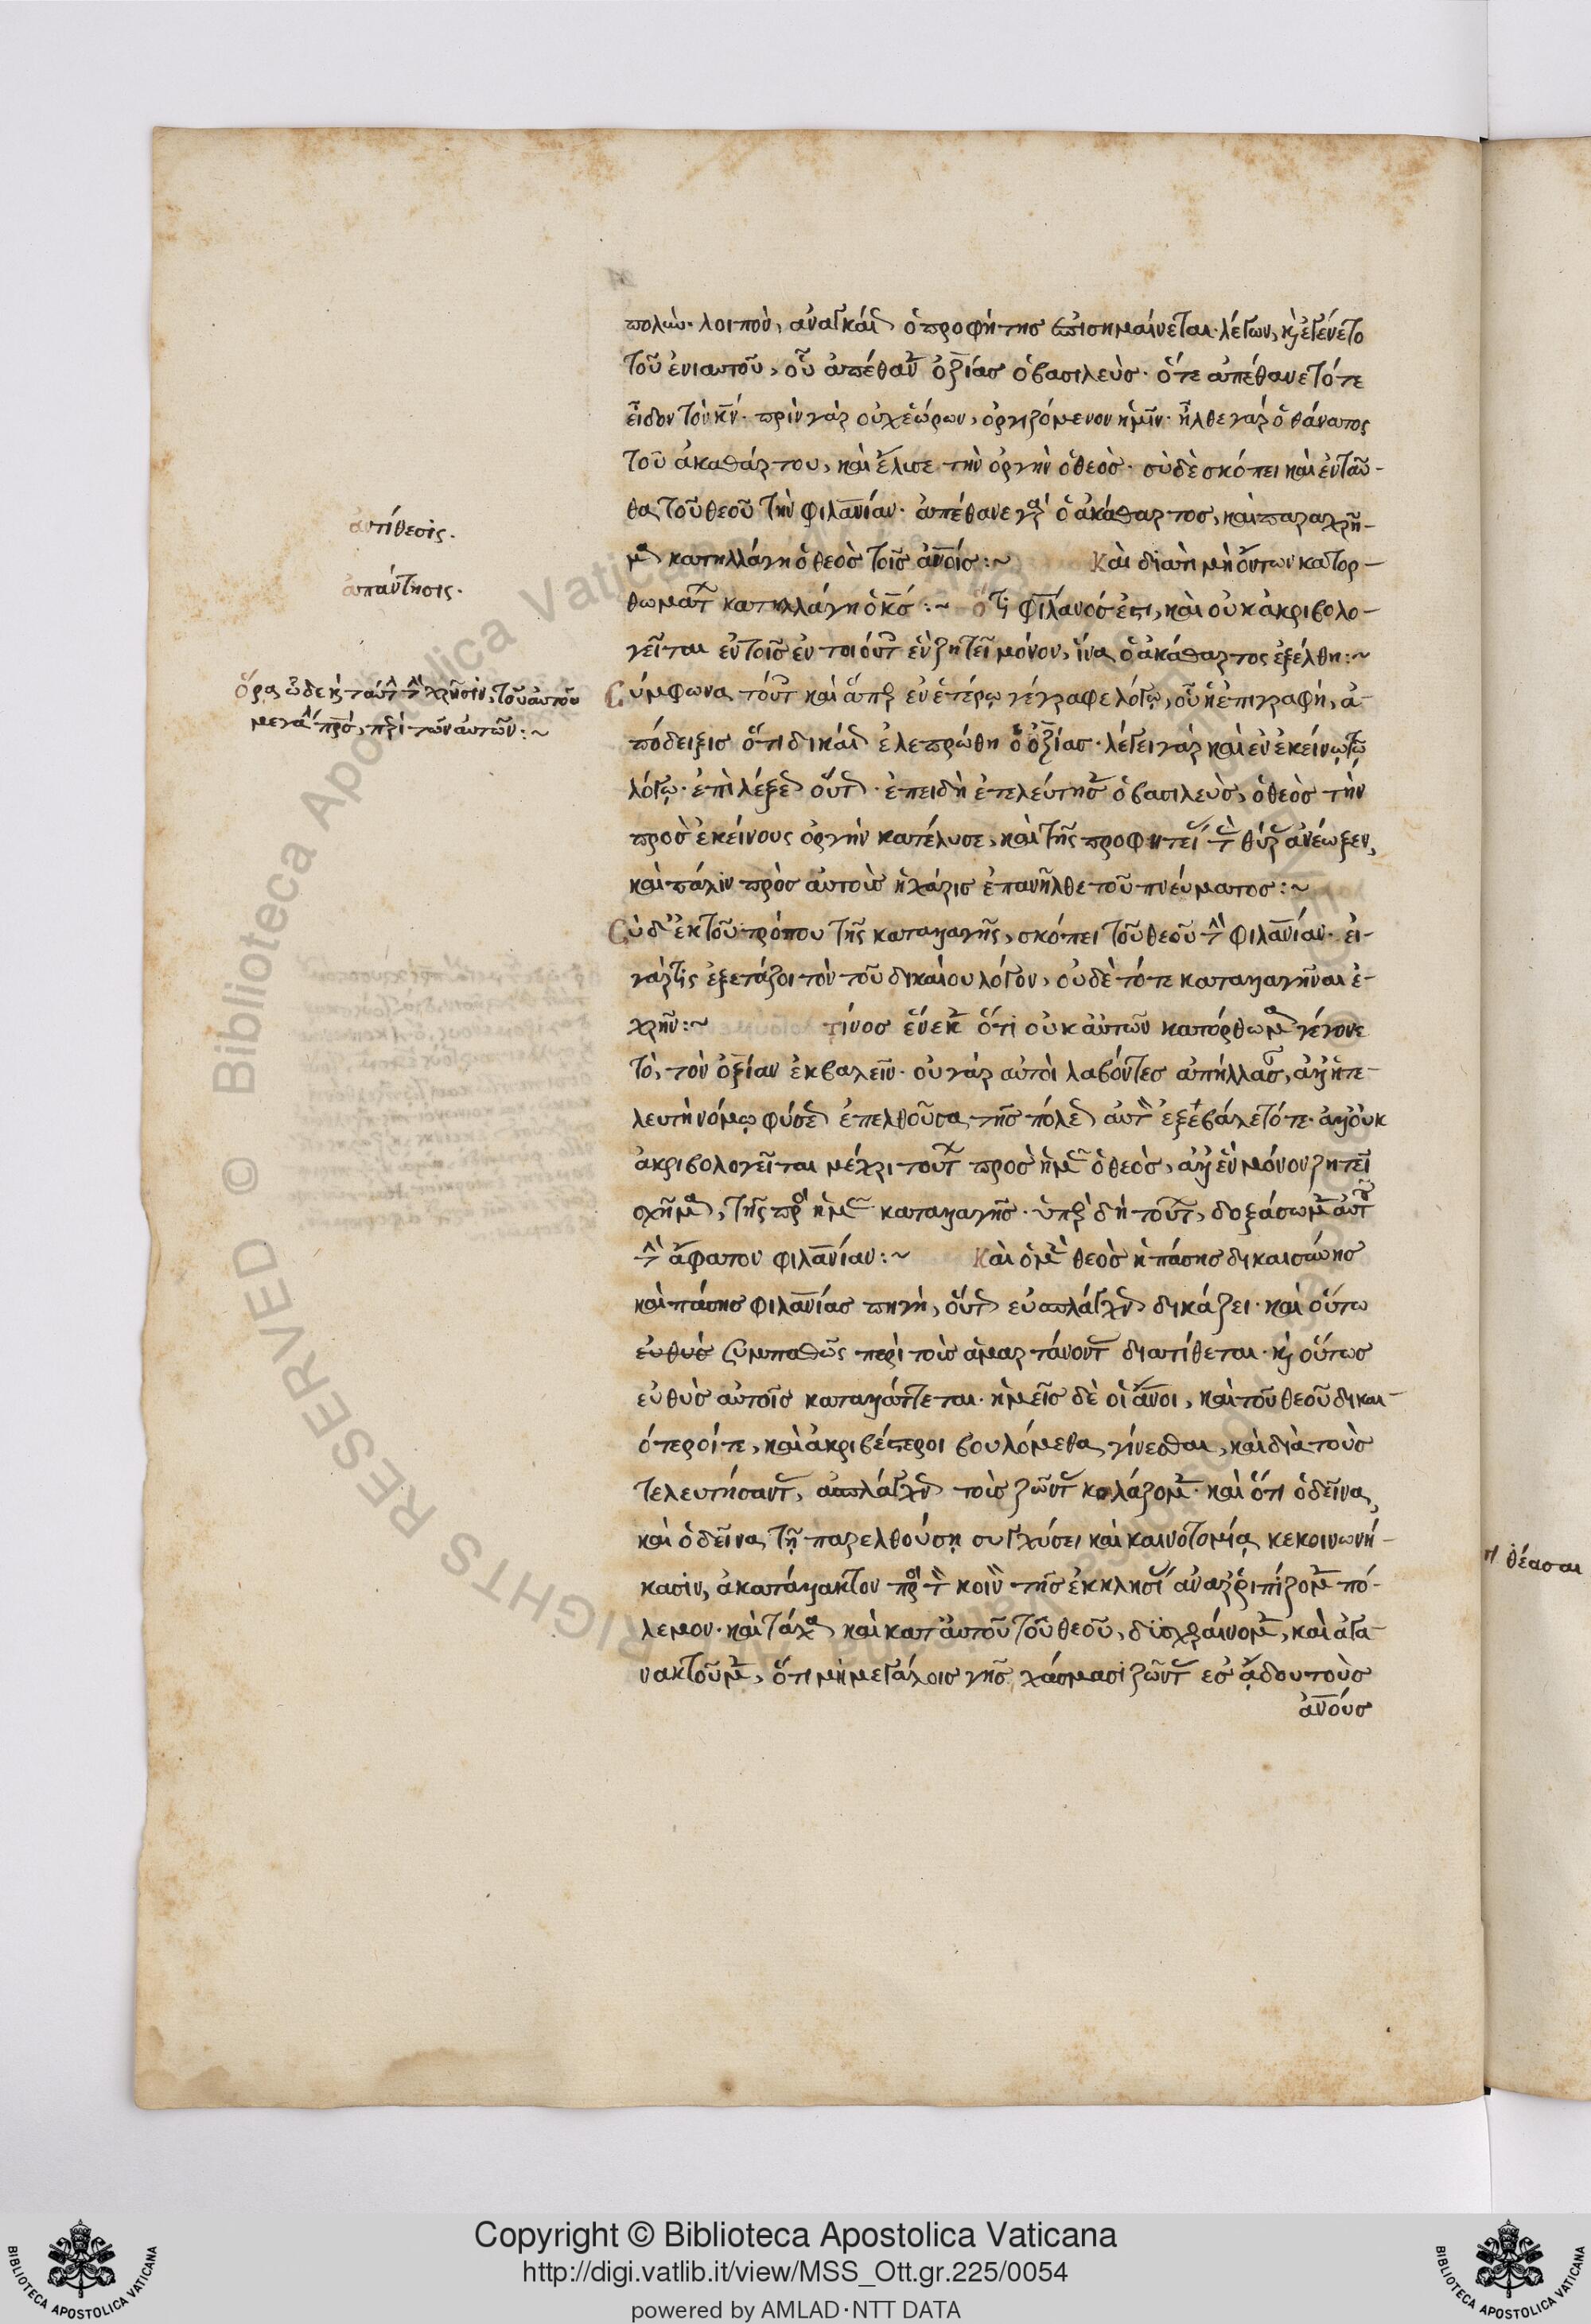 πολὺν. λοιπὸν, ἀναγκαίως ὁ προφήτης ἐπισημαίνεται λέγων, κ ἐγένετο
τοῦ ἐνιαυτοῦ, οὗ ἀπέθανεν ὀζίας ὁ βασιλεὺς. ὅτε ἀπέθανε τότε
εἶδον τὸν κν. πρὶν γὰρ οὐχ ἑώρων, ὀργιζόμενον ἡμῖν. ἦλθε γὰρ ὁ θάνατος
τοῦ ἀκαθάρτου, καὶ ἔλυσε τὴν ὀργὴν ὁ θεὸς. σὺ δὲ σκόπει καὶ ἐνταῦ-
θα τοῦ θεοῦ τὴν φιλανίαν. ἀπέθανε γὰρ ὁ ἀκάθαρτος, καὶ παραχρῆ-
μα κατηλλάγη ὁ θεὸς τοῖς ἀνοις:~ Καὶ διατί μὴ ὄντων κατορ-
ἀντίθεσις.
θωμάτων κατηλλάγη ὁ κς:~ ὅτι φιλανός ἐστι, καὶ οὐκ ἀκριβολο-
ἀπάντησις.
γεῖται ἐν τοῖς ἐν τοιούτοις ἓν ζητεῖ μόνον, ἵνα ὁ ἀκάθαρτος ἐξέλθη:~
Σύμφωνα τούτοις καὶ ἅπερ ἐν ἑτέρῳ γέγραφε λόγῳ, οὗ ἡ ἐπιγραφή, ἀ-
ὅρα ὧδε κ ταύτην τὴν χρῆσιν, τοῦ αὐτοῦ
μεγάλου πρς, περὶ τῶν αὐτῶν:~
πόδειξις ὅτι δικαίως ἐλεπρώθη ὁ ὀζίας. λέγει γὰρ καὶ ἐν ἐκείνῳ τῷ
λόγῳ. ἐπὶ λέξεως οὕτως. ἐπειδὴ ἐτελεύτησεν ὁ βασιλεὺς, ὁ θεὸς τὴν
πρὸς ἐκείνους ὀργὴν κατέλυσε, καὶ τῆς προφητείας τὰς θύρας ἀνέωξεν,
καὶ πάλιν πρὸς αὐτοὺς ἡ χάρις ἐπανῆλθε τοῦ πνεύματος:~
Σὺ δὲ ἐκ τοῦ τρόπου τῆς καταλλαγῆς, σκόπει τοῦ θεοῦ τὴν φιλανίαν. εἰ
γάρ τις ἐξετάζοι τὸν τοῦ δικαίου λόγον, οὐδὲ τότε καταλλαγῆναι ἐ-
χρῆν:~ τίνος ἕνεκεν ὅτι οὐκ αὐτῶν κατόρθωμα γέγονε
τὸ, τὸν ὀζίαν ἐκβαλεῖν. οὐ γὰρ αὐτοὶ λαβόντες ἀπήλλασαν, ἀλλ' ἡ τε-
λευτὴ νόμῳ φύσεως ἐπελθοῦσα τῆς πόλεως αὐτὸν ἐξέβαλε τότε. ἀλλ' οὐκ
ἀκριβολογεῖται μέχρι τούτων πρὸς ἡμᾶς ὁ θεὸς, ἀλλ' ἓν μόνον ζητεῖ
σχῆμα, τῆς πρὸς ἡμᾶς καταλλαγῆς. ὑπὲρ δὴ τούτων, δοξάσωμεν αὐτοῦ
τὴν ἄφατον φιλανίαν:~ Καὶ ὁ μὲν θεὸς ἡ πάσης δικαιοσύνης
καὶ πάσης φιλανίας πηγὴ, οὕτως εὐσπλάγχνως δικάζει. καὶ οὕτω
εὐθὺς συμπαθῶς περὶ τοὺς ἁμαρτάνοντας διατίθεται. κ οὕτως
εὐθὺς αὐτοῖς καταλλάττεται. ἡμεῖς δὲ οἱ ἄνοι, καὶ τοῦ θεοῦ δικαι-
ότεροί τε, καὶ ἀκριβέστεροι βουλόμεθα γίνεσθαι, καὶ διὰ τοὺς
τελευτήσαντας, ἀσπλάγχνως τοὺς ζῶντας κολάζομεν. καὶ ὅτι ὁ δεῖνα,
καὶ ὁ δεῖνα τῇ παρελθούσῃ συγχύσει καὶ καινοτομίᾳ κεκοινωνή-
κασιν, ἀκατάλλακτον πρὸς τὸ κοινὸν τῆς ἐκκλησίας ἀναρριπίζομεν πό-
λεμον. καὶ τάχα καὶ κατ' αὐτοῦ τοῦ θεοῦ, δυσχεραίνομεν, καὶ ἀγα-
νακτοῦμεν, ὅτι μὴ μεγάλοις γῆς χάσμασι ζῶντας ἐς ἅδου τοὺς
ἀνους
θέασαι
Copyright © Biblioteca Apostolica Vaticana
http://digi.vatlib.it/view/MSS_Ott.gr.225/0054
powered by AMLAD·NTT DATA
BIBLIOTECA APOSTOLICA VATICANA
BIBLIOTECA APOSTOLICA VATICANA